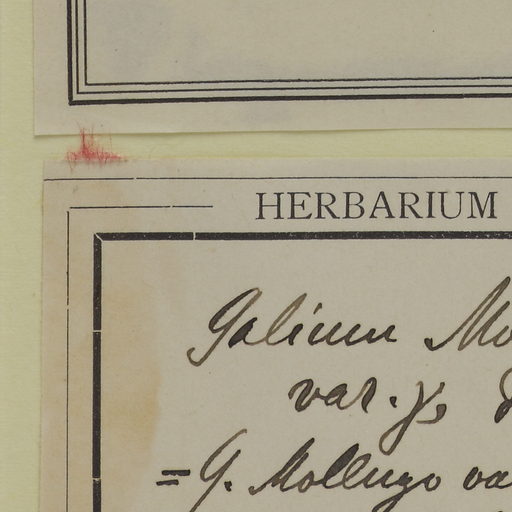 HERBARIUM
Galium Mo
var. γ,
= G. Mollugo va